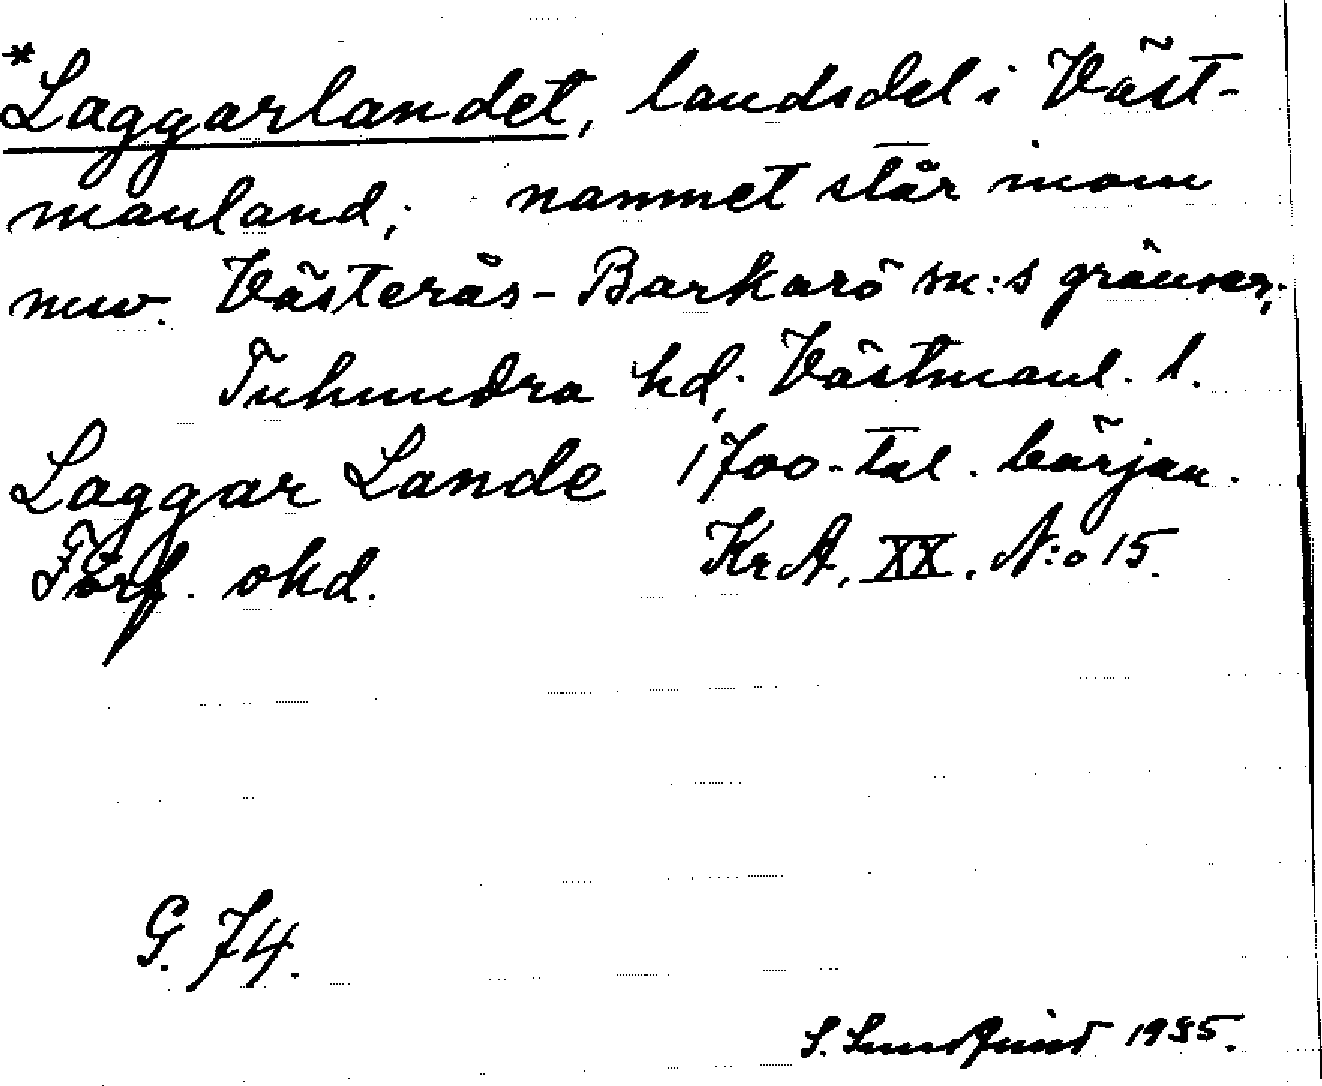 *Laggarlandet, landsdel i Väst-
manland; namnet står inom
nuv. Västerås-Barkarö sn:s gränser;
Tuhundra hd, Västmanl. l.
Laggar Lande 1700-tal. början.
Förf. okd. KrA, XX. N:o 15.
G. 74.
S. 1935.